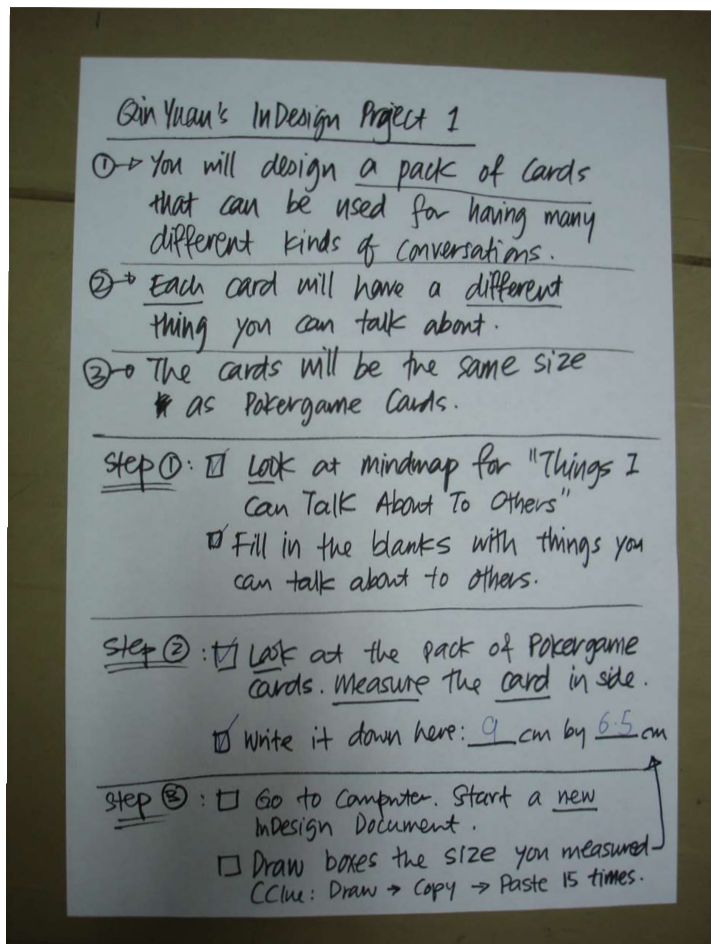 Qin Yuan's InDesign Project 1
① → You will design a pack of cards
that can be used for having many
different kinds of conversations.
② → Each card will have a different
thing you can talk about.
③ → The cards will be the same size
as Pokergame Cards.
Step ①: ☑ Look at mindmap for "Things I
Can Talk About To Others"
☑ Fill in the blanks with things you
can talk about to others.
Step ②: ☑ Look at the pack of Pokergame
cards. Measure the card in side.
☑ Write it down here: 9 cm by 6.5 cm
Step ③: ☐ Go to Computer. Start a new
InDesign Document.
☐ Draw boxes the size you measured
CClue: Draw → Copy → Paste 15 times.